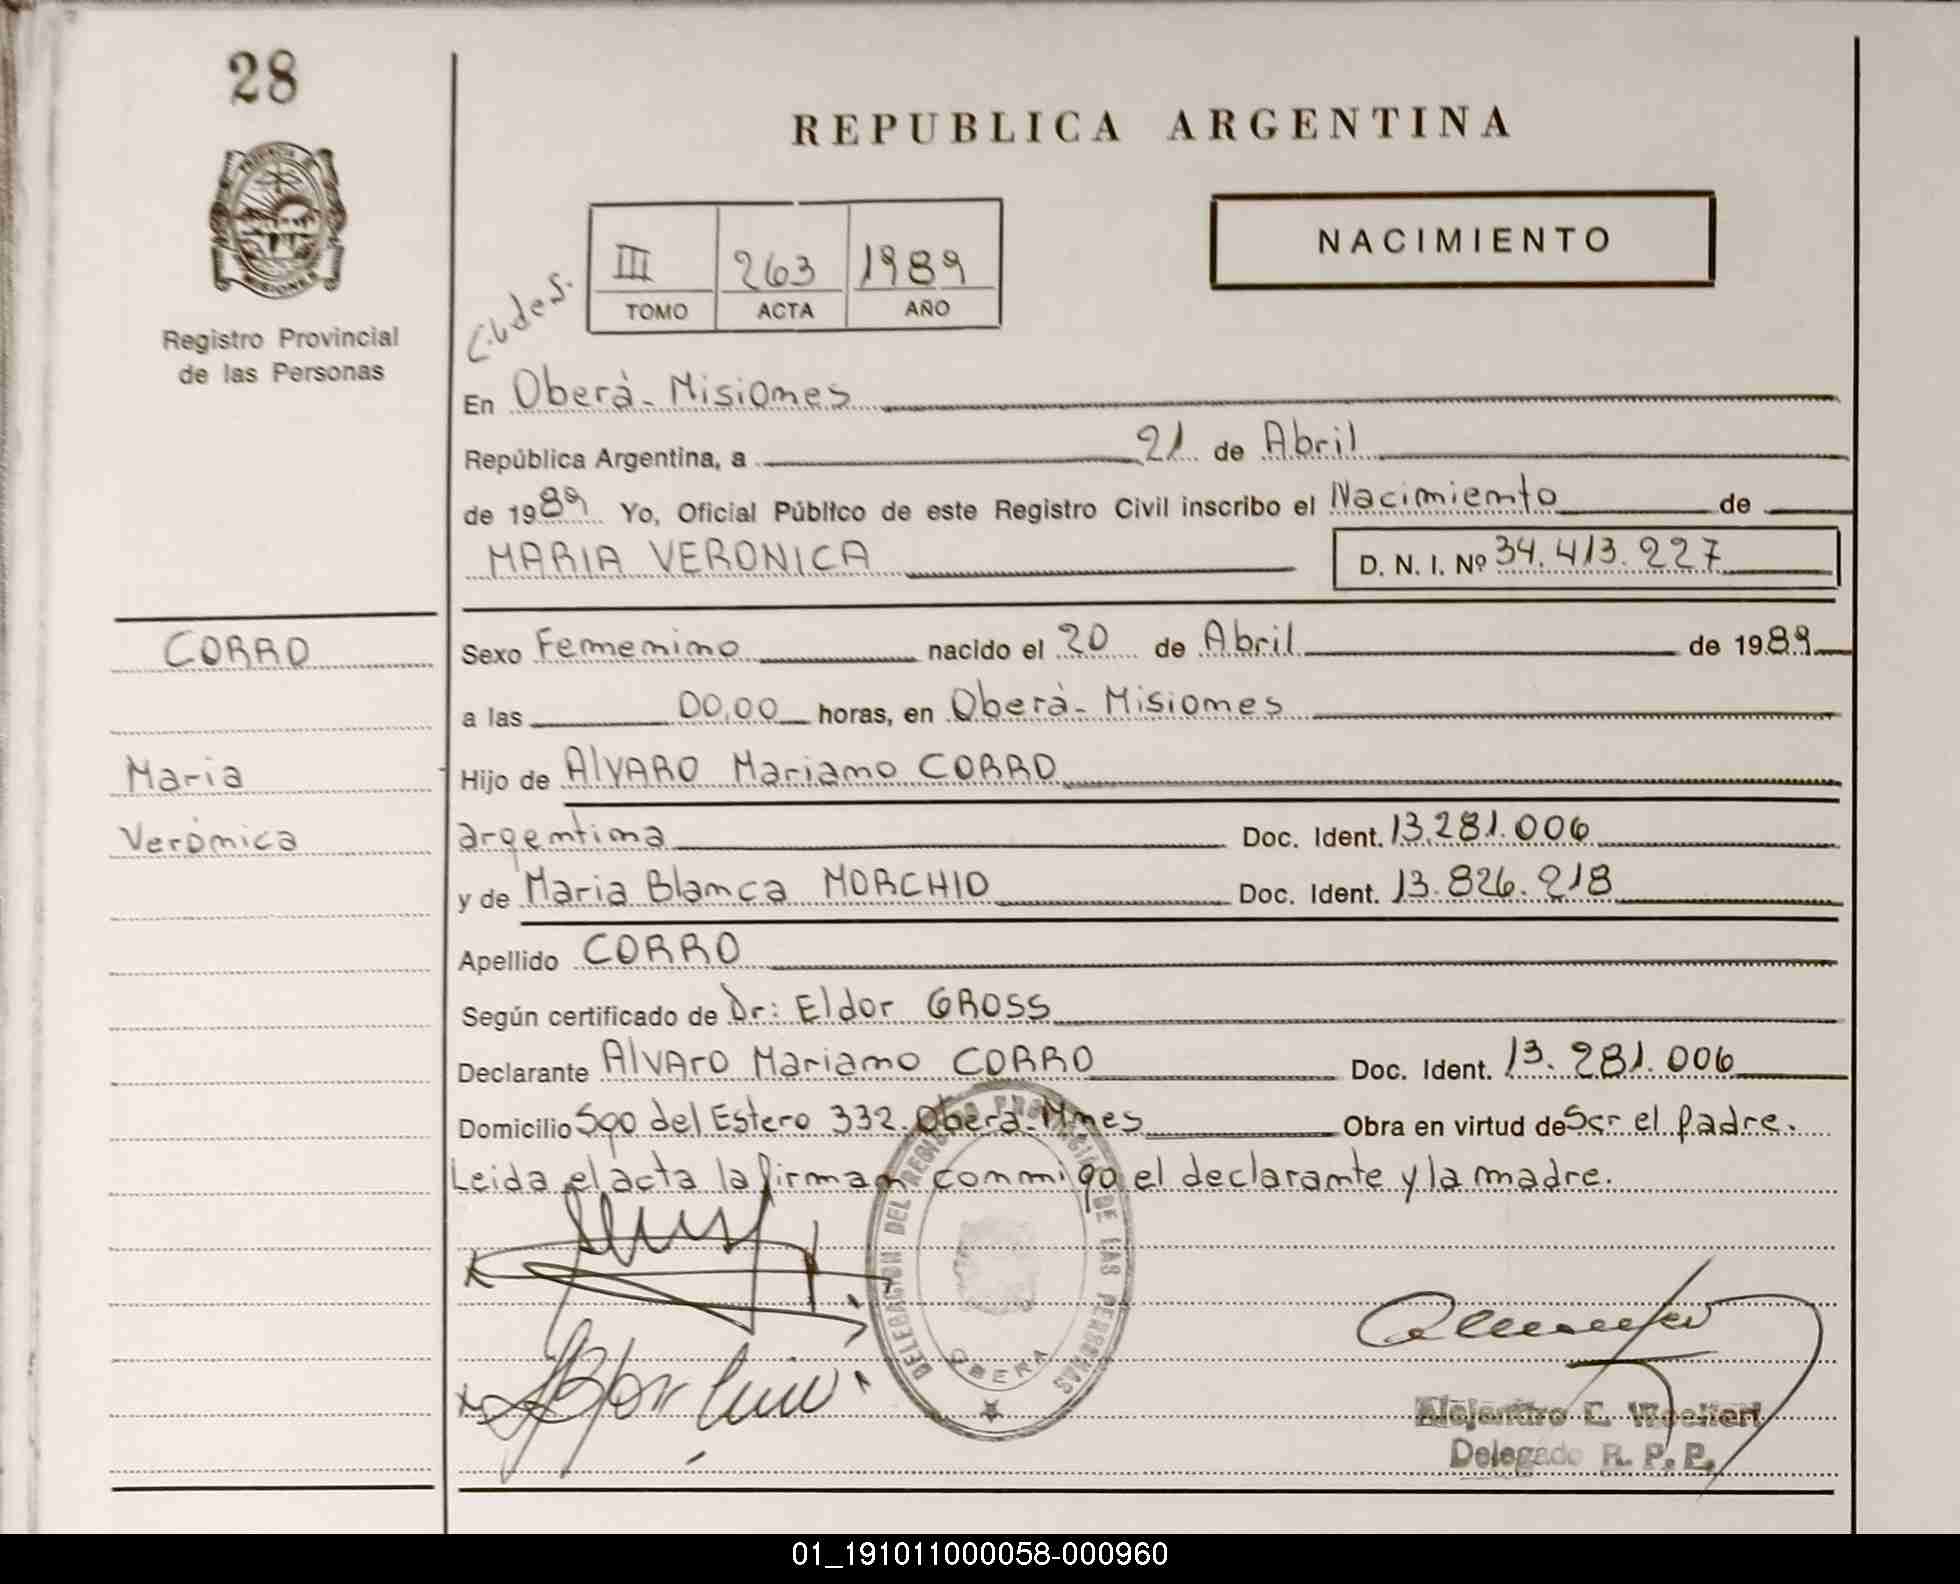 28
REPUBLICA ARGENTINA
NACIMIENTO
III 263 1989
TOMO ACTA AÑO
PROVINCIA DE
MISIONES
Registro Provincial
de las Personas
En Oberà - Misiones
República Argentina, a 21 de Abril
de 1989 Yo, Oficial Público de este Registro Civil inscribo el Nacimiento de
MARIA VERONICA D. N. I. Nº 34.413.227
CORRO
Sexo Femenino nacido el 20 de Abril de 1989
a las 00,00 horas, en Oberà - Misiones
Maria
Hijo de AlVARO Mariano CORRO
Verònica
argentina Doc. Ident. 13.281.006
y de Maria Blanca MORCHIO Doc. Ident. 13.826.218
Apellido CORRO
Según certificado de Dr: Eldor GROSS
Declarante AlVARO Mariano CORRO Doc. Ident. 13.281.006
Domicilio Sgo del Estero 332. Oberà - Mnes Obra en virtud de Ser el padre.
Leida el acta la firman conmigo el declarante y la madre.
DELEGACION DEL REGISTRO PROVINCIAL DE LAS PERSONAS
OBERA
Alejandro E.
Delegado R. P. P.
01_191011000058-000960